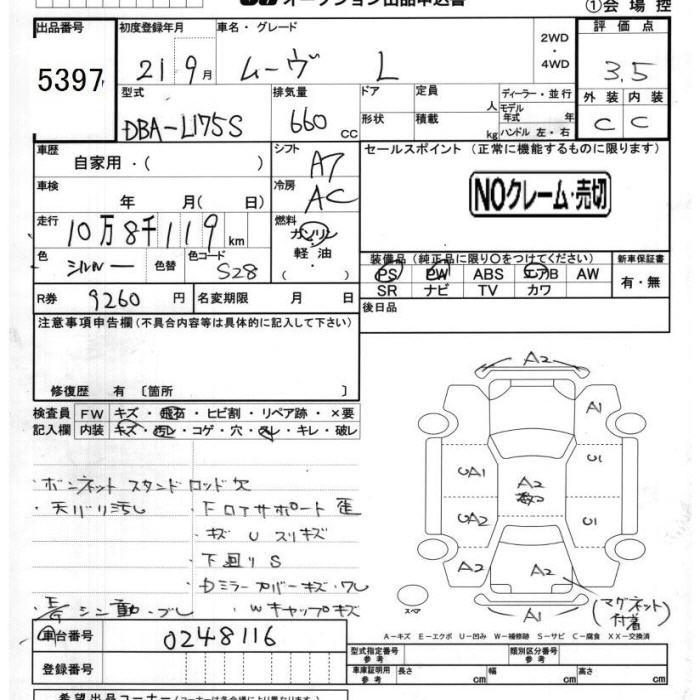 オークション出品申込書
①会場控
出品番号
5397
初度登録年月
21 9月
車名・グレード
ムーヴ L
2WD
・
4WD
評価点
3.5
外装 内装
C C
型式
DBA-L175S
排気量
660 cc
ドア
形状
定員
人
積載
kg
ディーラー・並行
モデル年式 年
ハンドル 左・右
車歴
自家用・( )
シフト
A7
セールスポイント (正常に機能するものに限ります)
NOクレーム・売切
車検
年 月( 日)
冷房
AC
走行
10万8千119km
燃料
ガソリン
・
軽油
( )
色
シルバー
色替
色コード
S28
装備品(純正品に限り○をつけてください)
PS PW ABS エアB AW
SR ナビ TV カワ
新車保証書
有・無
R券
9260 円
名変期限 月 日
後日品
注意事項申告欄(不具合内容等は具体的に記入して下さい)
修復歴 有〔箇所 〕
検査員 FW キズ・飛石・ヒビ割・リペア跡・×要
記入欄 内装 キズ・汚レ・コゲ・穴・スレ・キレ・破レ
・ボンネットスタンドロッド欠
・天バリ汚し ・Fロアサポート歪
・キズ U スリキズ
・下廻りS
・Dミラーカバーキズ・ワレ
シン動・ブレ ・Wキャップキズ
A2
A1
UA1
U1
A2
UA2
U1
A2
A2
A2
A1
(マグネット付着)
スペア
A-キズ E-エクボ U-凹み W-補修跡 S-サビ C-腐食 XX-交換済
車台番号
0248116
登録番号
型式指定番号
参考
類別区分番号
参考
車庫証明用
参考
長さ cm 幅 cm 高さ cm
希望出品コーナー(コーナーは各会場により異なります。)